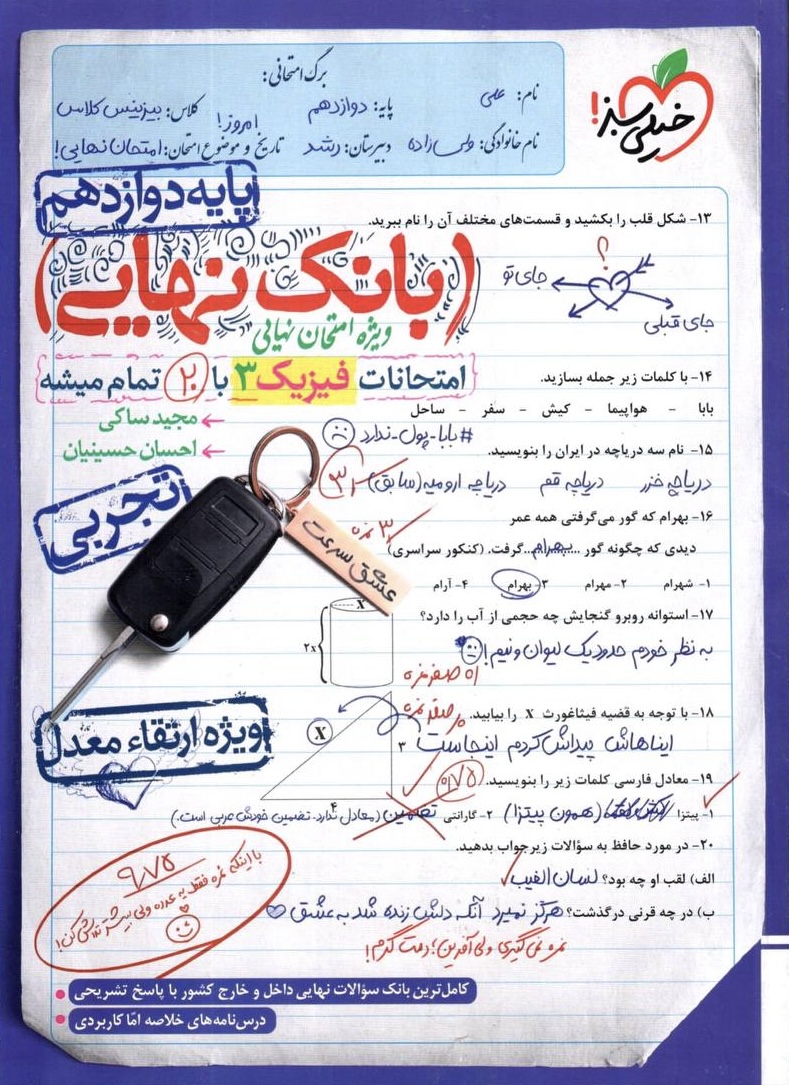 برگ امتحانی:
نام: علی
پایه: دوازدهم
کلاس: بیزینس کلاس
نام خانوادگی: ولی زاده
دبیرستان: رشد
تاریخ و موضوع امتحان: امروز! امتحان نهایی!
خیلی سبز!
پایه دوازدهم
۱۳- شکل قلب را بکشید و قسمت‌های مختلف آن را نام ببرید.
؟
جای تو
جای قبلی
(بانک نهایی)
ویژه امتحان نهایی
امتحانات فیزیک ۳ با ۲۰ تمام میشه
مجید ساکی
احسان حسینیان
۱۴- با کلمات زیر جمله بسازید.
بابا - هواپیما - کیش - سفر - ساحل
#بابا-پول-ندارد
۱۵- نام سه دریاچه در ایران را بنویسید.
دریاچه خزر دریاچه قم دریاچه ارومیه (سابق)
تجربی
۱۶- بهرام که گور می‌گرفتی همه عمر
دیدی که چگونه گور ...بهرام... گرفت. (کنکور سراسری)
۳ نمره
۱- شهرام ۲- مهرام ۳- بهرام ۴- آرام
عشق سرعت
۱۷- استوانه روبرو گنجایش چه حجمی از آب را دارد؟
X
۲x
به نظر خودم حدود یک لیوان و نیم!
اه صفر نمره
۱۸- با توجه به قضیه فیثاغورث X را بیابید.
صفر نمره
X
۳
۴
ایناهاش پیداش کردم اینجاست
ویژه ارتقاء معدل
۱۹- معادل فارسی کلمات زیر را بنویسید.
۰/۷۵
۱- پیتزا (همون پیتزا) ۲- گارانتی تضمین (معادل ندارد. تضمین خودش عربی است.)
۲۰- در مورد حافظ به سؤالات زیر جواب بدهید.
الف) لقب او چه بود؟ لسان الغیب
ب) در چه قرنی درگذشت؟ هرگز نمیرد آنکه دلش زنده شد به عشق
نمره نمی‌گیری ولی آفرین؛ دمت گرم!
۹/۷۵
با اینکه نمره فقط یه عدده ولی بیشتر تلاش کن!
کامل‌ترین بانک سؤالات نهایی داخل و خارج کشور با پاسخ تشریحی
درس‌نامه‌های خلاصه امّا کاربردی